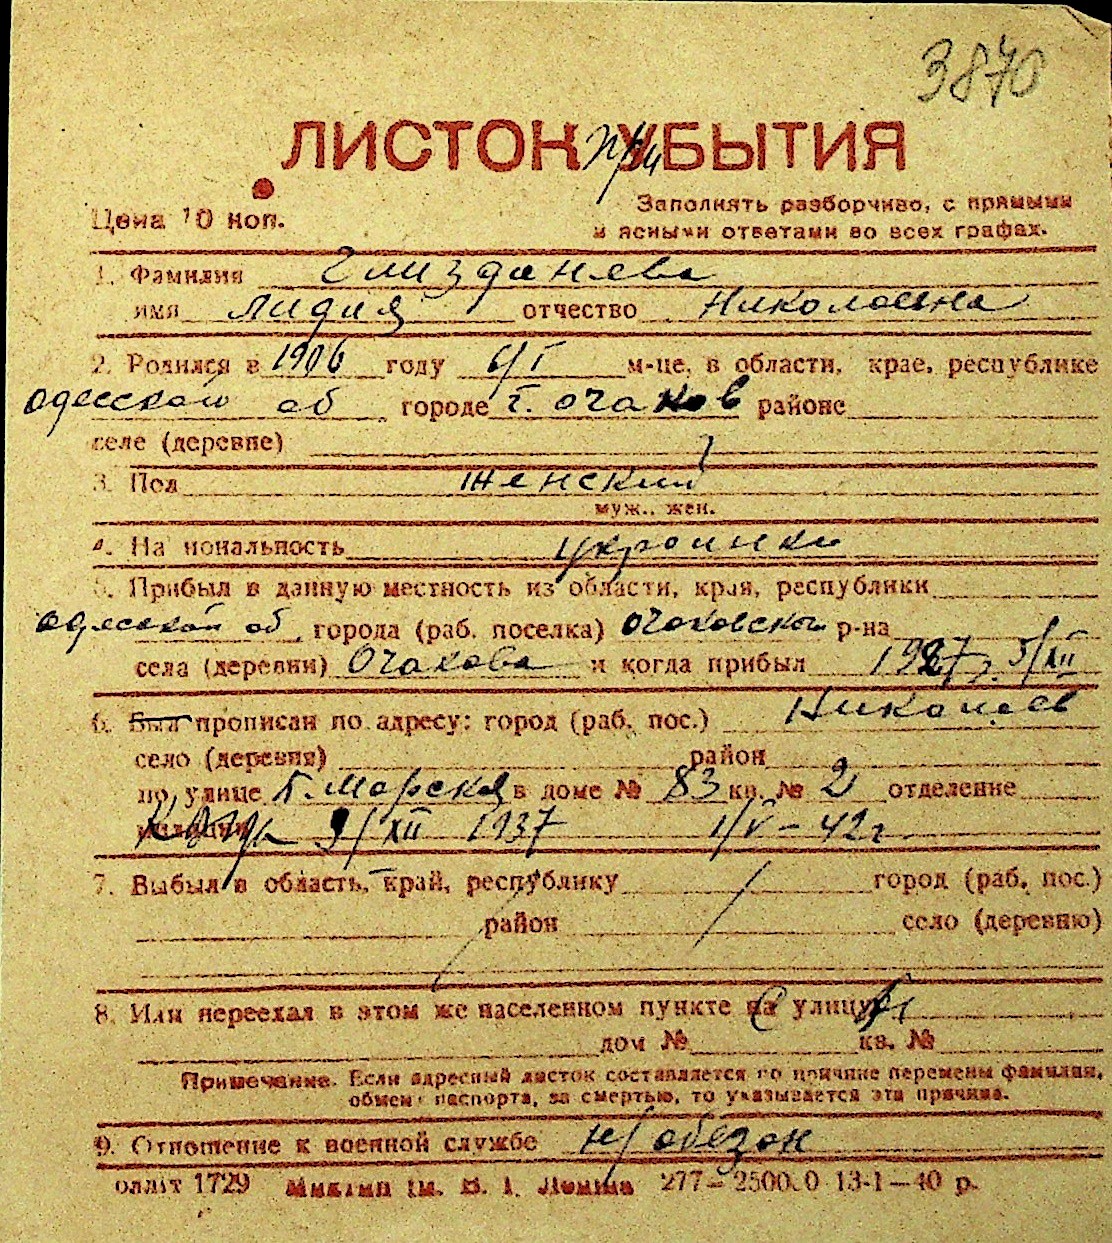 3870
ЛИСТОК УБЫТИЯ
Цена 10 коп.
Заполнять разборчиво, с прямыми
и ясными ответами во всех графах.
1. Фамилия Глизданева
имя Лидия отчество Николаевна
2. Родился в 1906 году 6/I м-це, в области, крае, республике
Одесской об городе г. Очаков районе
селе (деревне)
3. Пол женский
муж., жен.
4. Национальность украинка
5. Прибыл в данную местность из области, края, республики
Одесской об города (раб. поселка) Очаковском р-на
села (деревни) Очакова и когда прибыл 1927 г. 5/XII
6. Был прописан по адресу: город (раб. пос.) Николаев
село (деревня) район
по улице Б. Морская в доме № 83 кв. № 2 отделение
милиции 9/XII 1937 1/V - 42 г
7. Выбыл в область, край, республику город (раб, пос.)
район село (деревню)
8. Или переехал в этом же населенном пункте на улицу
дом № кв. №
Примечание. Если адресный листок составляется по причине перемены фамилии,
обмена паспорта, за смертью, то указывается эта причина.
9. Отношение к военной службе н/обязан
оллiт 1729 Миктип iм. В. I. Ленiна 277—2500.0 13-1—40 р.